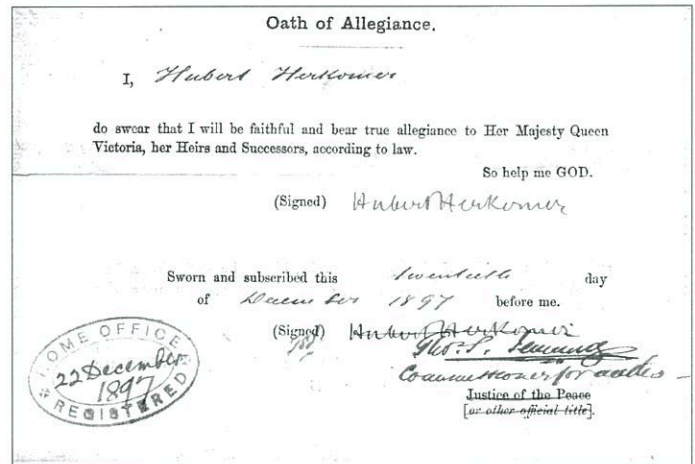 Oath of Allegiance.
I, Hubert Herkomer
do swear that I will be faithful and bear true allegiance to Her Majesty Queen
Victoria, her Heirs and Successors, according to law.
So help me GOD.
(Signed) Hubert Herkomer
Sworn and subscribed this twentieth day
of December 1897 before me.
(Signed) Hubert Herkomer
Thos. S.
Commissioner for oaths
Justice of the Peace
[or other official title].
HOME OFFICE
22 December
1897
REGISTERED